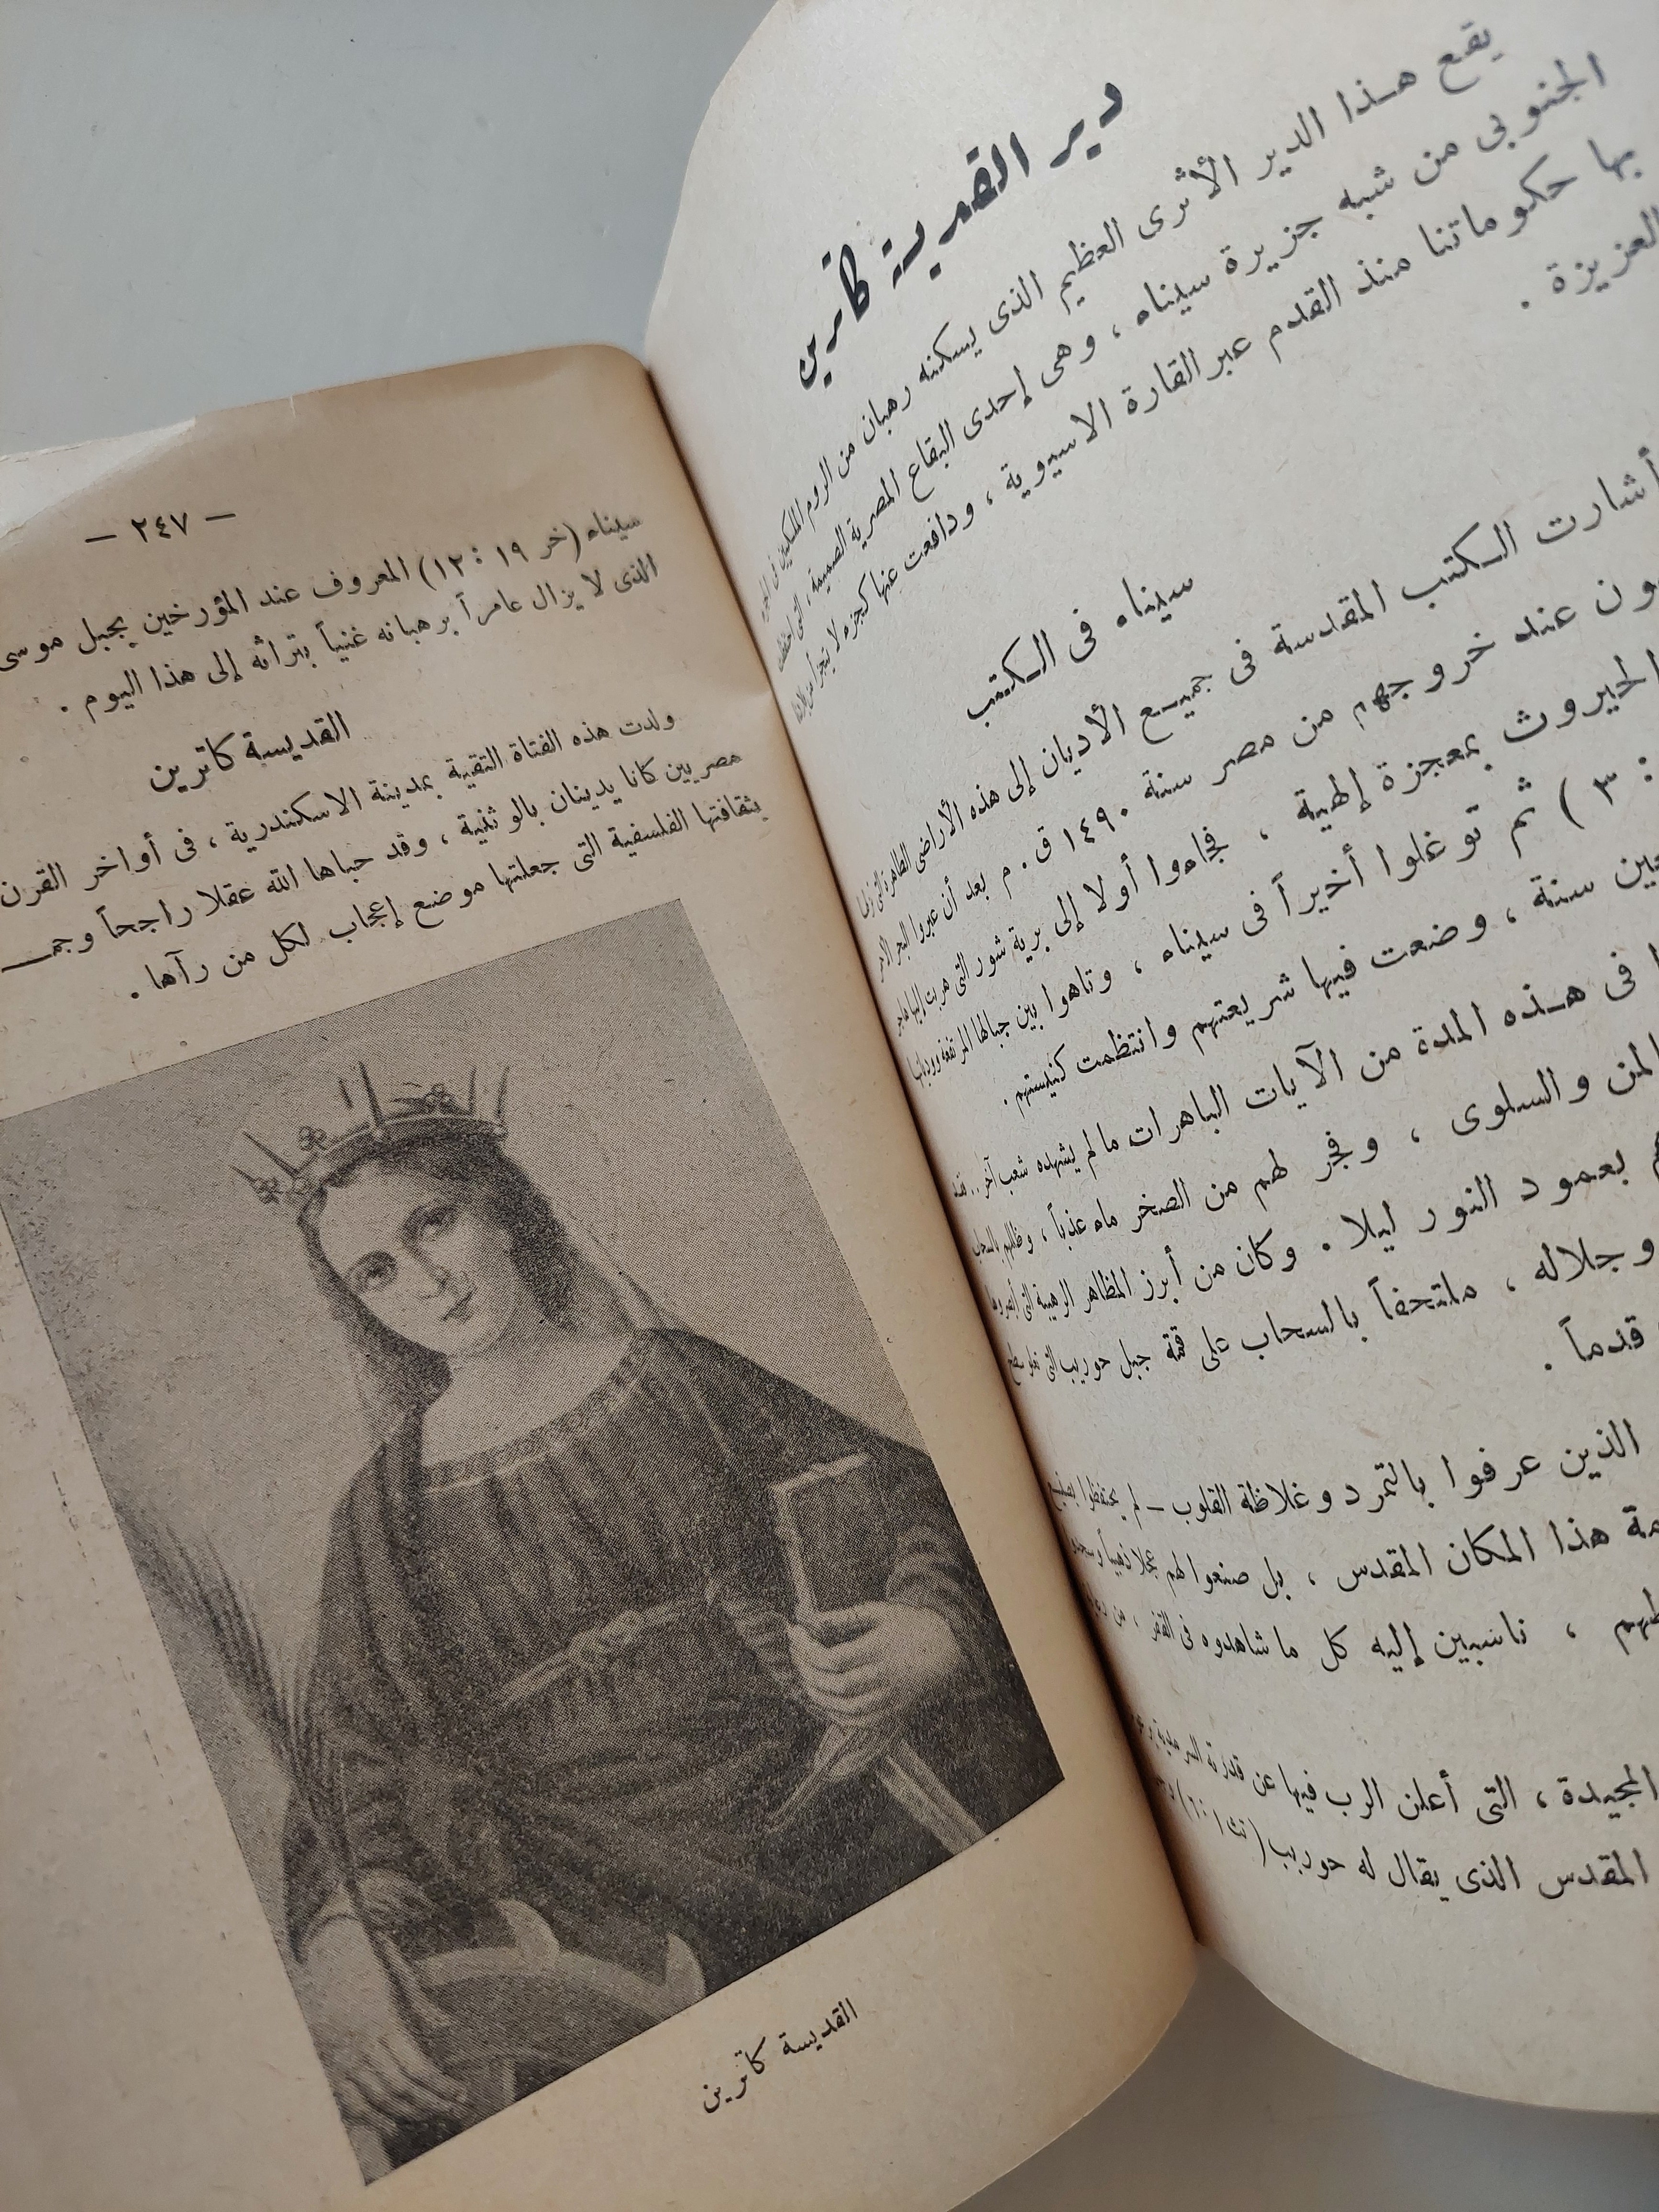 دير القديسة كاترين
يقع هـذا الدير الأثرى العظيم الذى يسكنه رهبان من الروم الملكيين فى الجزء
الجنوبى من شبه جزيرة سيناء ، وهى إحدى البقاع المصرية الصميمة ، التى احتفظت
بها حكوماتنا منذ القدم عبر القارة الاسيوية ، ودافعت عنها كجزء لا يتجزأ من بلادنا
العزيزة .
سيناء فى الـكتب
أشارت الـكتب المقدسة فى جميـع الأديان إلى هذه الأراضى الطاهرة التى
ون عند خروجهم من مصر سنة ١٤٩٠ ق . م بعد أن عبروا البحر الاحمر
الحيروث بمعجزة إلهية ، فجاءوا أولا إلى برية شور التى هربت إليها هاجر
: ٣ ) ثم توغلوا أخيراً فى سيناء ، وتاهوا بين جبالها المرتفعة ووديانها
سنة ، وضعت فيها شريعتهم وانتظمت كنيستهم .
فى هـذه المدة من الآيات الباهرات مالم يشهده شعب آخر . . فقد
المن والسلوى ، وفجر لهم من الصخر ماء عذباً ، وظللهم بالسحاب
بعمود النور ليلا . وكان من أبرز المظاهر الرهيبة التى أبصروها
وجلاله ، ملتحفاً بالسحاب على قمة جبل حوريب التى تعلو سطح
قدماً .
الذين عرفوا بالتمرد وغلاظة القلوب ـ لم يحتفظوا
هذا المكان المقدس ، بل صنعوا لهم عجلا ذهبياً وسجدوا
، ناسبين إليه كل ماشاهدوه فى القفر ، من
المجيدة ، التى أعلن الرب فيها عن قدرته السرمدية
المقدس الذى يقال له حوريب ( تث ١ : ٦ )
— ٢٤٧ —
سيناء (خر ١٩ : ١٢) المعروف عند المؤرخين بجبل موسى
الذى لا يزال عامراً برهبانه غنياً بتراثه إلى هذا اليوم .
القديسة كاترين
ولدت هذه الفتاة التقية بمدينة الاسكندرية ، فى أواخر القرن
مصريين كانا يدينان بالوثنية ، وقد حباها الله عقلا راجحاً
بثقافتها الفلسفية التى جعلتها موضع إعجاب لكل من رآها .
القديسة كاترين